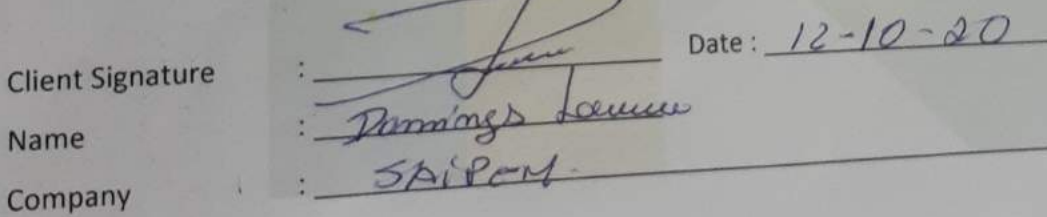 Client Signature : Date : 12-10-20
Name : Dommings
Company : SAiPEM.